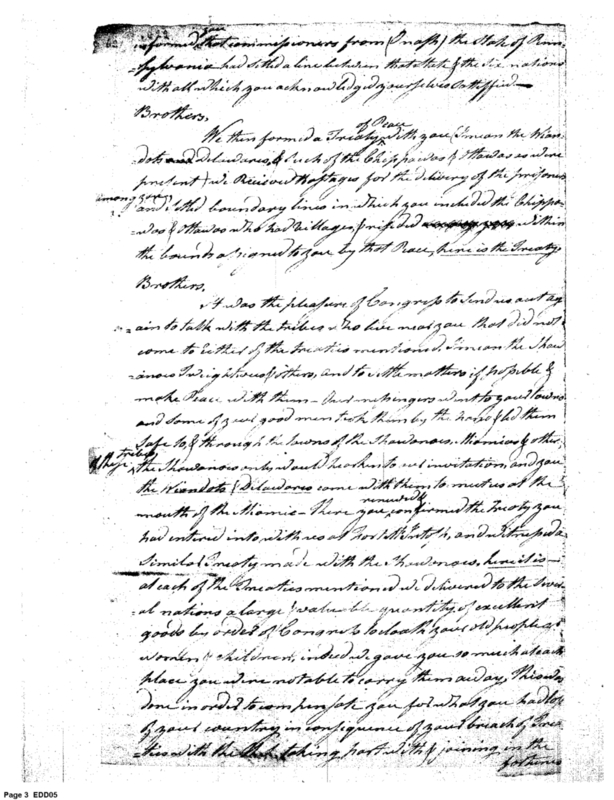 you
informed, that commissioners from (Onash) the State of Penn-
=sylvania had setled a line between that State & the Six nations
with all which you acknowledged yourselves Sattisfied—
Brothers,
of Peace
We then formed a Treaty with you (I mean the Wian-
dots and Delawares, & Such of the Chippawas & Ottawas as were
present) we Received Hostages for the delivery of the prisoners
among you
and setled boundary lines in which you included the Chippa-
was & Ottawas who had Villages, & resided within
the bounds assigned to you by that Peace, here is the Treaty
Brothers,
It was the pleasure of Congress to Send us out ag-
ain to talk with the tribes who live near you that did not
come to Either of the treaties mentioned, I mean the Shaw-
anoes Twightwees & others, and to settle matters if possible &
make Peace with them— Our messengers went to your towns
and some of your good men took them by the hand & led them
Safe to, & through the towns of the Shawanoes, Miamies & other
of these tribes
the Shawanoes only would hearken to our invitation, and you
the Wiandots & Delawares came with them to meet us at the
mouth of the Miamie— there you renewed & confirmed the Treaty you
had entered into, with us at Fort McIntosh, and witnessed a
Similar Treaty made with the Shawanoes, here it is—
at each of the Treaties mentioned we delivered to the Sever-
al nations a large & valuable quantity of excellent
goods by order of Congress to cloath your old people
women & children, indeed we gave you so much at each
place you were not able to carry them away, this was
done in order to compensate you for what you had lost
of your country in consequence of your breach of Trea-
ties with the taking part with & joining in the
Page 3 EDD05